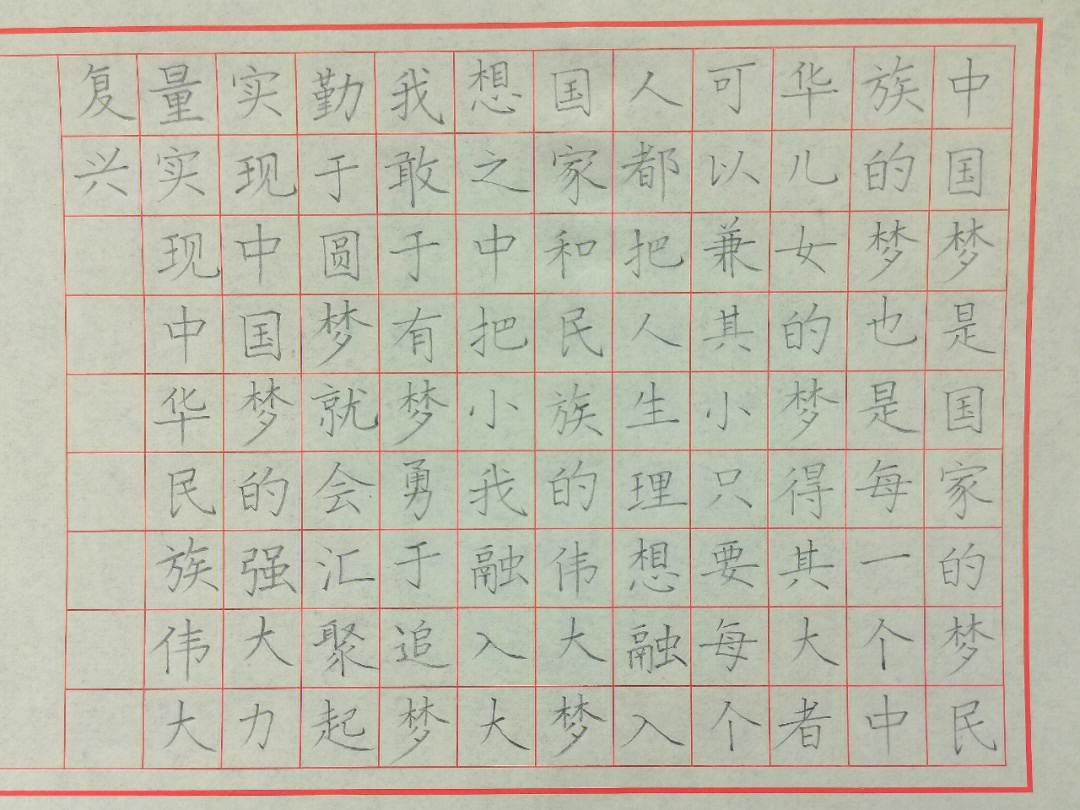 中国梦是国家的梦民
族的梦也是每一个中
华儿女的梦得其大者
可以兼其小只要每个
人都把人生理想融入
国家和民族的伟大梦
想之中把小我融入大
我敢于有梦勇于追梦
勤于圆梦就会汇聚起
实现中国梦的强大力
量实现中华民族伟大
复兴